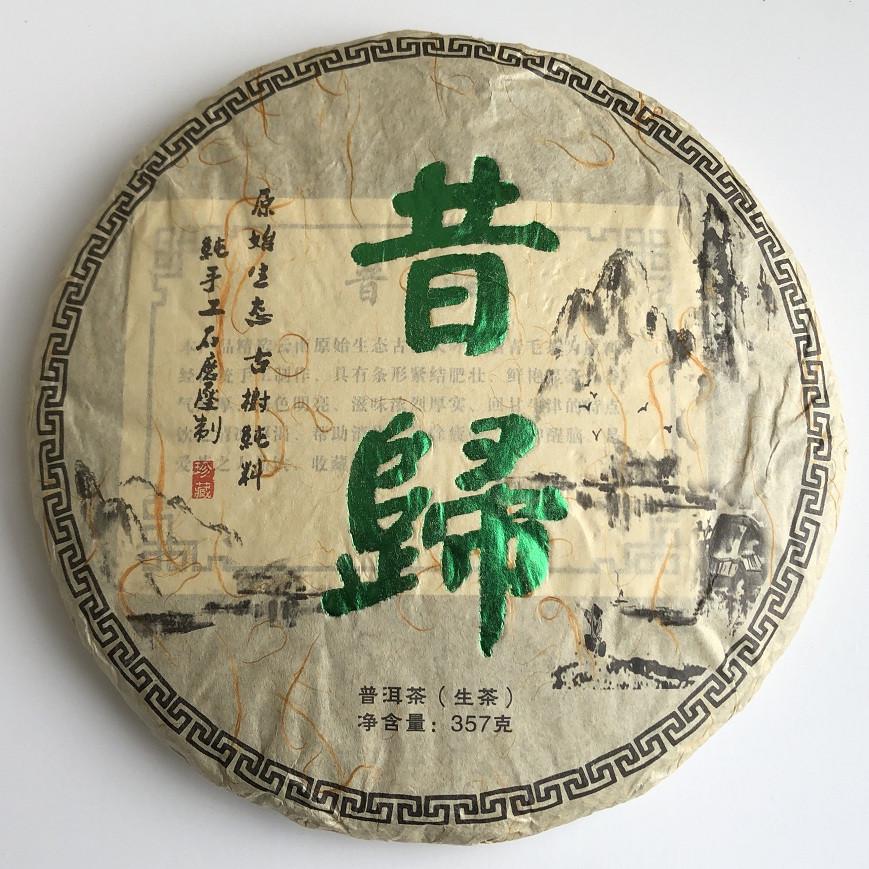 昔歸
原始生态 古樹純料
純手工石磨壓制
珍藏
普洱茶（生茶）
净含量：357克
原始生态古
具有条形紧结肥壮、鲜艳
色明亮、滋味浓烈厚实、回甘生津的特点
帮助消
收藏